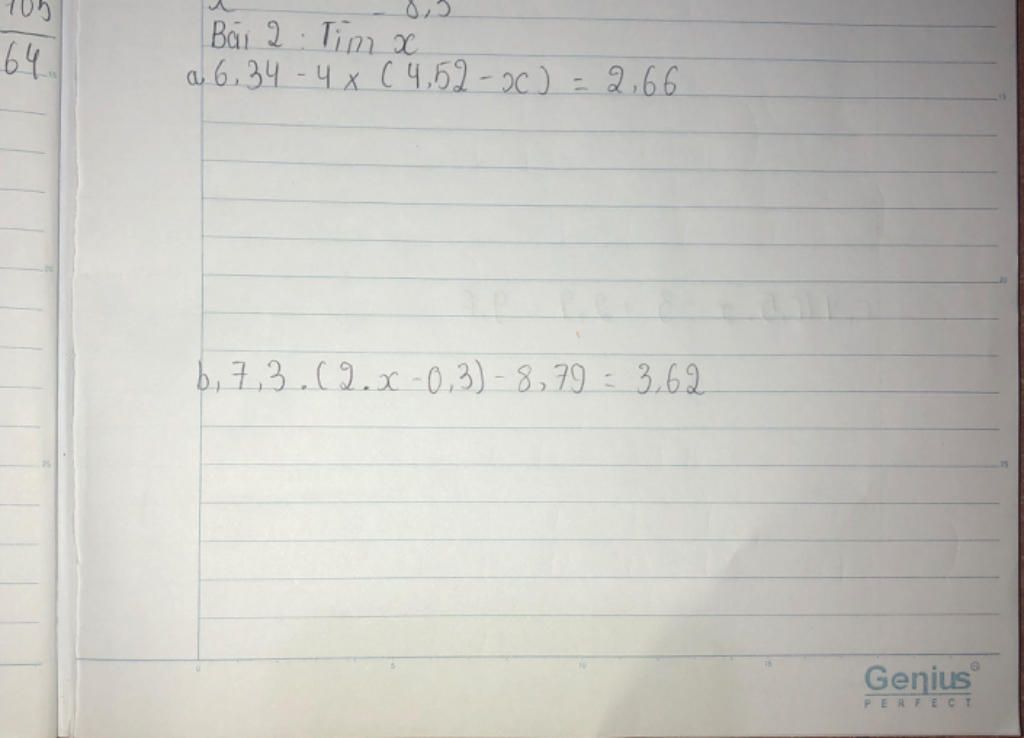 105
64
8,5
Bài 2 : Tìm x
a, 6,34 - 4 x (4,52 - x) = 2,66
b, 7,3 . (2 . x - 0,3) - 8,79 = 3,62
Genius
PERFECT